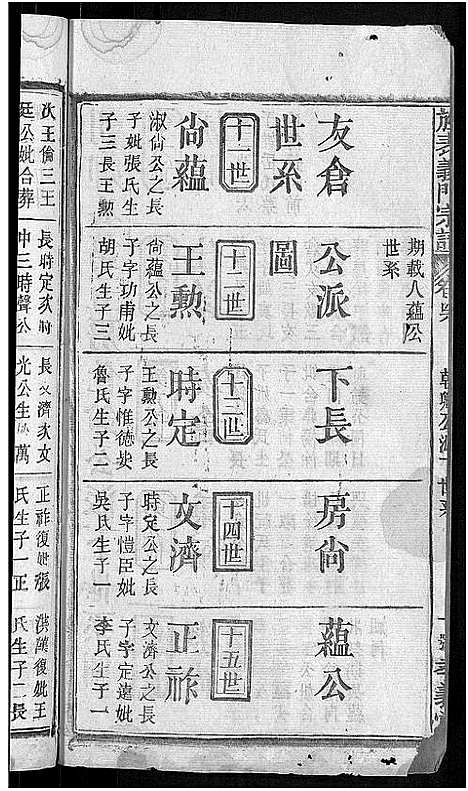 旌表義門宗譜
世系
期載八蘊公
世系
友倉公派下長房尚蘊公
世系圖
十一世
尚蘊
淑尚公之長
子妣張氏生
子三長王勳
十二世
王勳
尚蘊公之長
子字功甫妣
胡氏生子三
十三世
時定
王勳公之長
子字惟德娶
魯氏生子二
十四世
文濟
時定公之長
子字愷臣妣
吳氏生子一
十五世
正祚
文濟公之長
子字定遠妣
李氏生子一
次王倫三王
廷公妣合葬
長時定次時
中三時聲公
長文濟次文
光公生 萬
正祚復妣張
氏生子一正
洪漢復妣王
氏生子二長